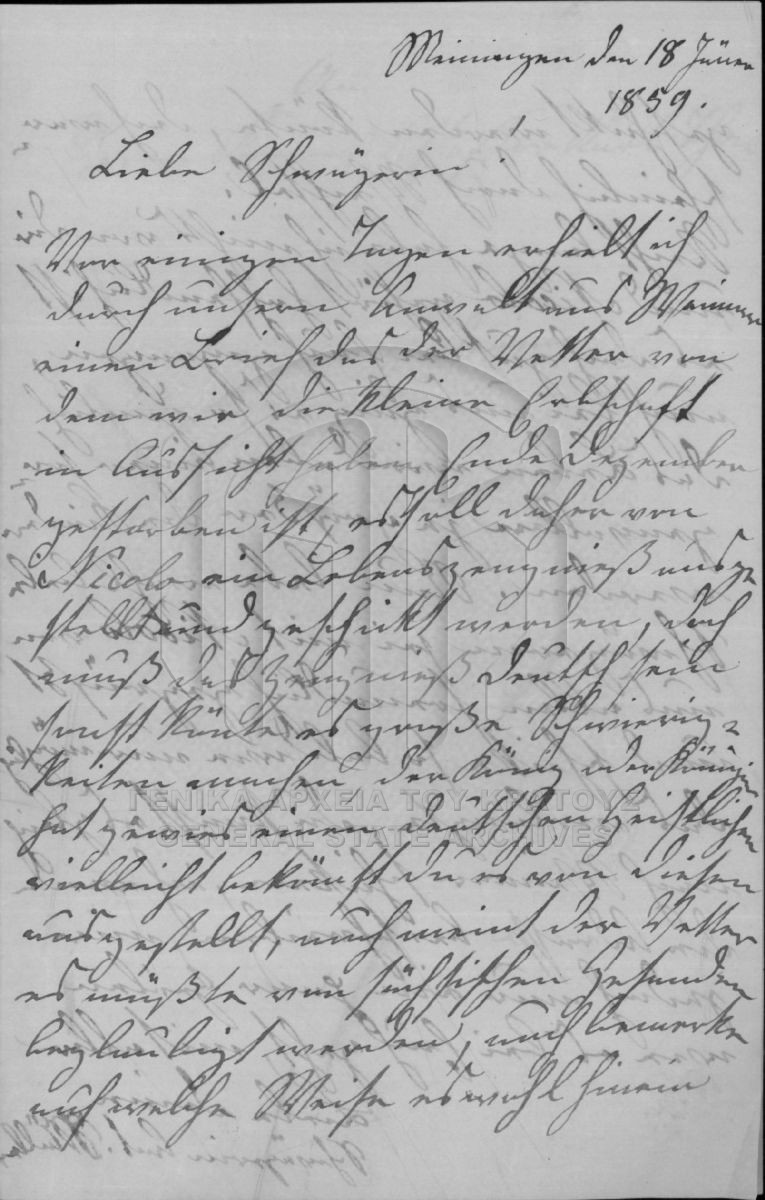 Meiningen den 18 Jäner
1859.
Liebe Schwägerin!
Vor einigen Tagen erhielt ich
durch unsern Anwalt aus Weimar
einen Brief das der Vetter von
dem wir die kleine Erbschaft
in Aussicht haben Ende Dezember
gestorben ist, es soll daher von
Nicolo ein Lebenszeugnieß ausge
stellt und geschickt werden, doch
muß das Zeugnieß deutsch sein
sonst könte es große Schwierig=
keiten machen der König oder Königin
hat gewies einen deutschen Geistlichen
vielleicht bekömst du es von diesen
ausgestellt, auch meint der Vetter
es müßte von sächsischen Gesanden
beglaubigt werden, auch bemerke
auf welche Weise es wohl hinein
ΓΕΝΙΚΑ ΑΡΧΕΙΑ ΤΟΥ ΚΡΑΤΟΥΣ
GENERAL STATE ARCHIVES